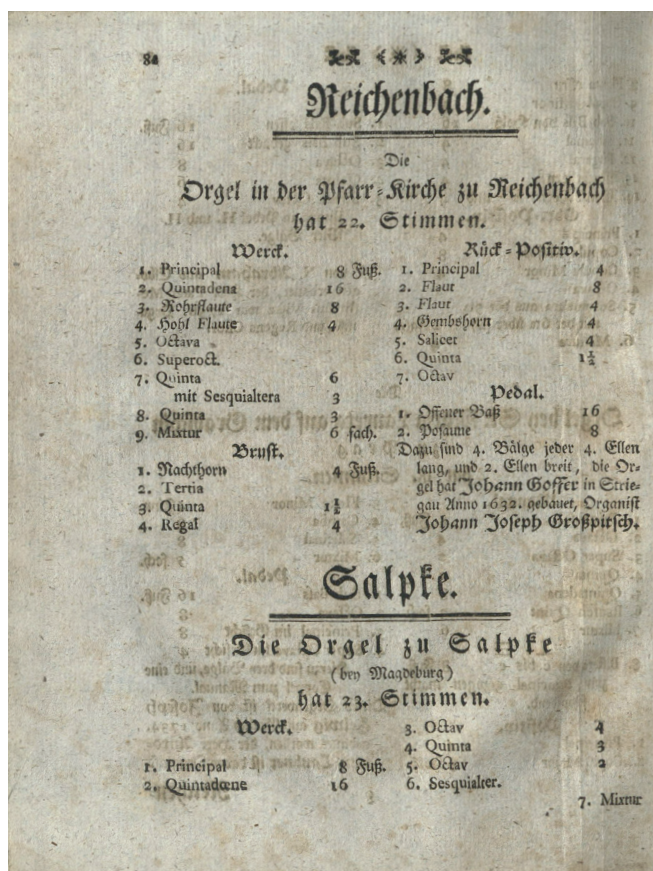 80
Reichenbach.
Die
Orgel in der Pfarr-Kirche zu Reichenbach
hat 22. Stimmen.
Werck.
1. Principal 8 Fuß.
2. Quintadena 16
3. Rohrflaute 8
4. Hohl Flaute 4
5. Octava
6. Superoct.
7. Quinta 6
mit Sesquialtera 3
8. Quinta 3
9. Mixtur 6 fach.
Brust.
1. Nachthorn 4 Fuß.
2. Tertia
3. Quinta 1½
4. Regal 4
Rück-Positiv.
1. Principal 4
2. Flaut 8
3. Flaut 4
4. Gembshorn 4
5. Salicet 4
6. Quinta 1½
7. Octav
Pedal.
1. Offener Baß 16
2. Posaune 8
Dazu sind 4. Bälge jeder 4. Ellen
lang, und 2. Ellen breit, die Or-
gel hat Johann Goffer in Strie-
gau Anno 1632. gebauet, Organist
Johann Joseph Großpitsch.
Salpke.
Die Orgel zu Salpke
(bey Magdeburg)
hat 23. Stimmen.
Werck.
1. Principal 8 Fuß.
2. Quintadœne 16
3. Octav 4
4. Quinta 3
5. Octav 2
6. Sesquialter.
7. Mixtur